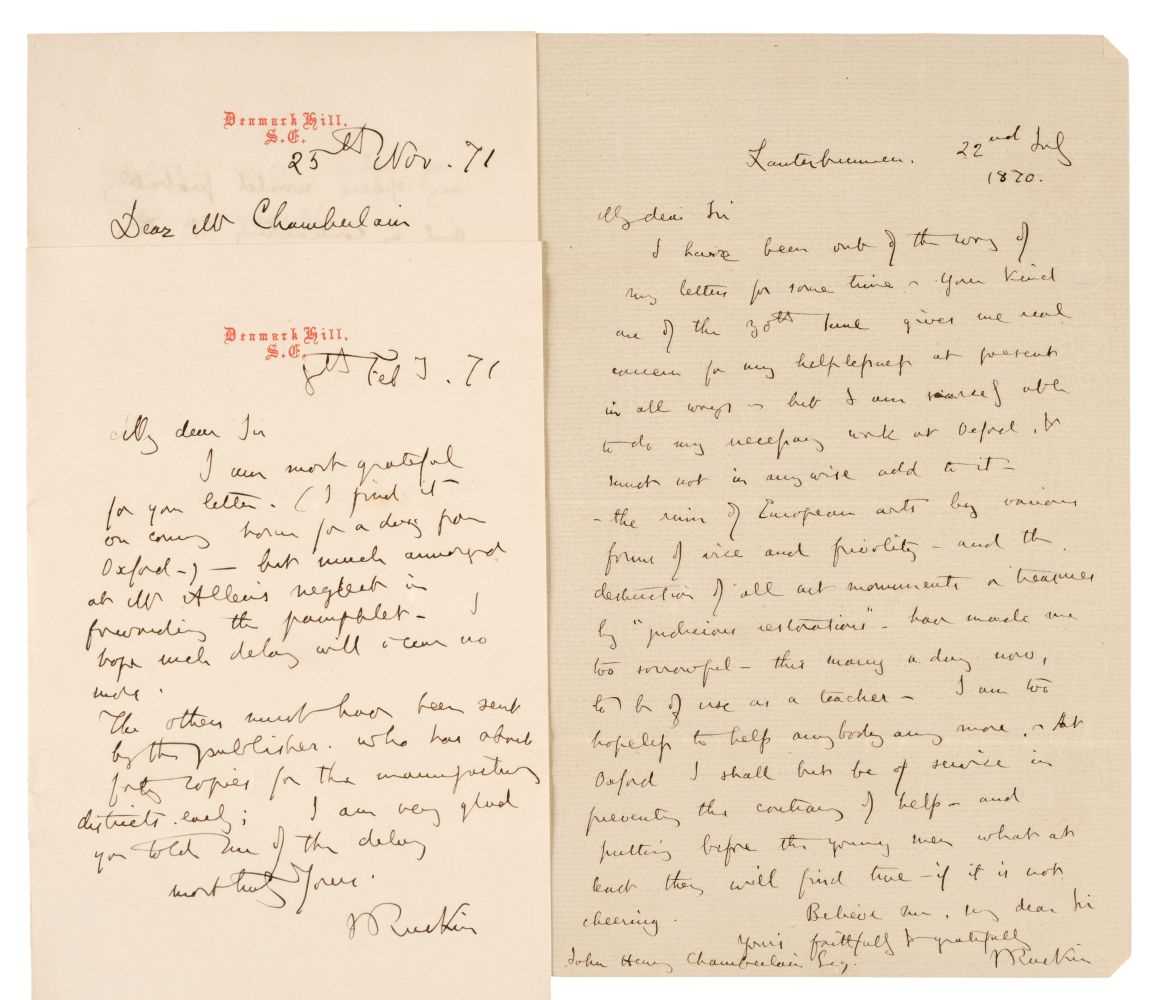 Denmark Hill,
S.E.
25th Nov. 71
Dear Mr Chamberlain
Denmark Hill,
S.E.
8th Feby. 71
My dear Sir
I am most grateful
for your letter. (I find it
on coming home for a day from
Oxford-) - but much annoyed
at Mr Allen's neglect in
forwarding the pamphlet - I
hope such delay will occur no
more.
The others must have been sent
by the publisher. who has about
forty copies for the manufacturing
districts. early; I am very glad
you told me of the delay
most truly Yours.
J Ruskin
Lauterbrunnen. 22nd July
1870.
My dear Sir
I have been out of the way of
my letters for some time - Your kind
one of the 30th June gives me real
concern for my helplessness at present
in all ways - but I am scarcely able
to do my necessary work at Oxford, &
must not in anywise add to it -
- the ruin of European arts by various
forms of vice and frivolity - and the
destruction of all art monuments or treasures
by "judicious restorations" - have made me
too sorrowful - this many a day now,
to be of use as a teacher - I am too
hopeless to help anybody any more. - At
Oxford I shall but be of service in
preventing the contrary of help - and
putting before the young men what at
least they will find true - if it is not
cheering. Believe me, my dear Sir
Yours faithfully & gratefully
J Ruskin
John Henry Chamberlain Esq.